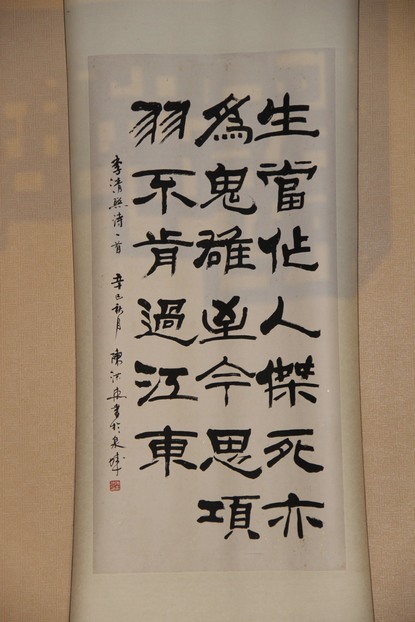 生當作人傑死亦
為鬼雄至今思項
羽不肯過江東
李清照詩一首 辛巳秋月 陳江安書於泉城